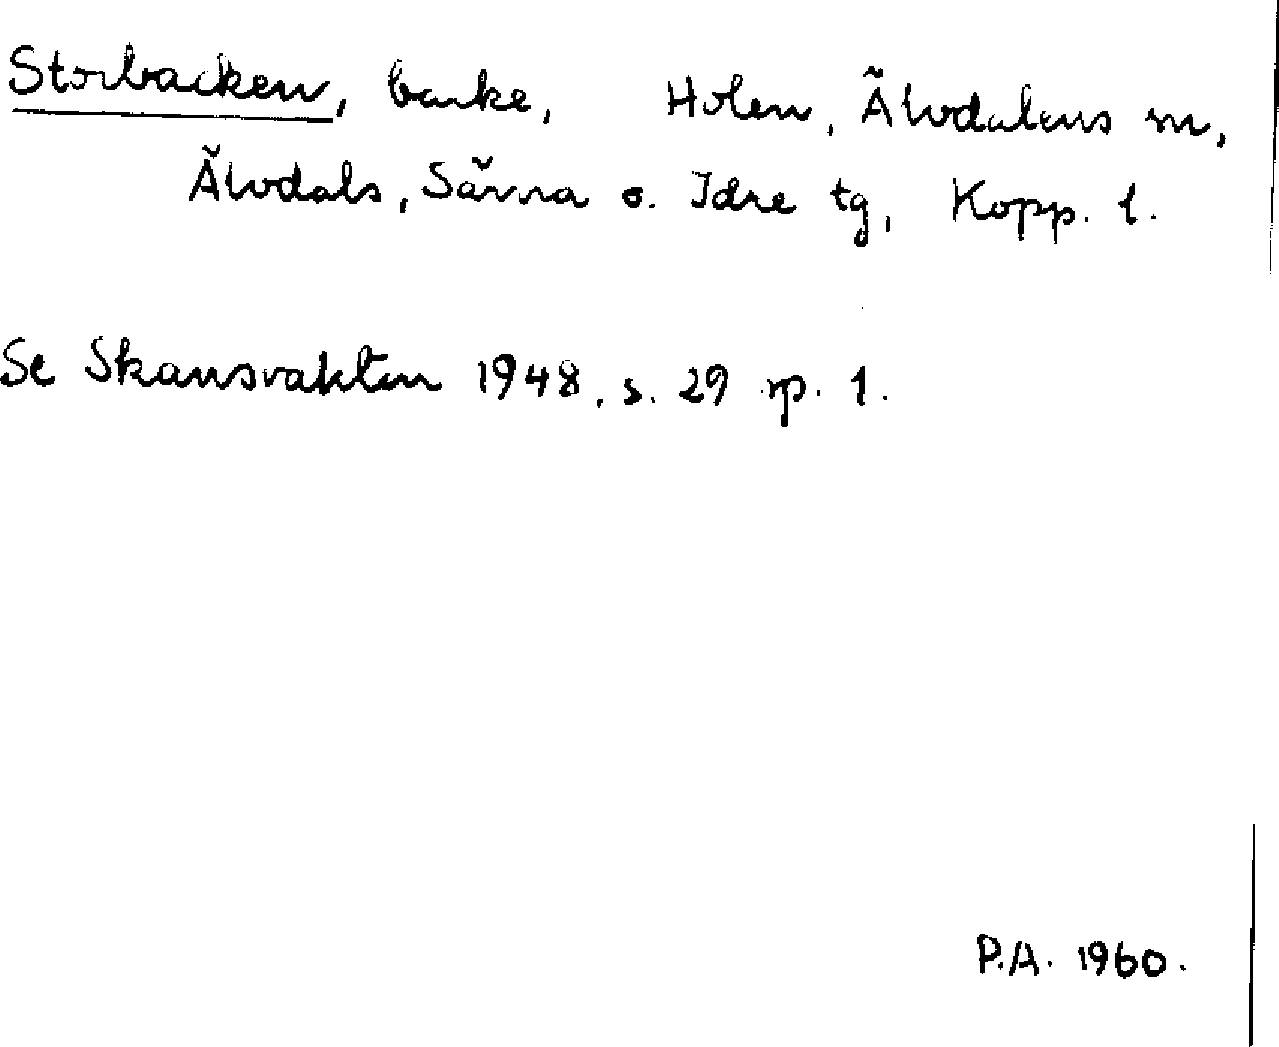 Storbacken, backe, Holen, Älvdalens sn,
Älvdals, Särna o. Idre tg, Kopp. l.
Se Skansvakten 1948, s. 29 sp. 1.
P.A. 1960.